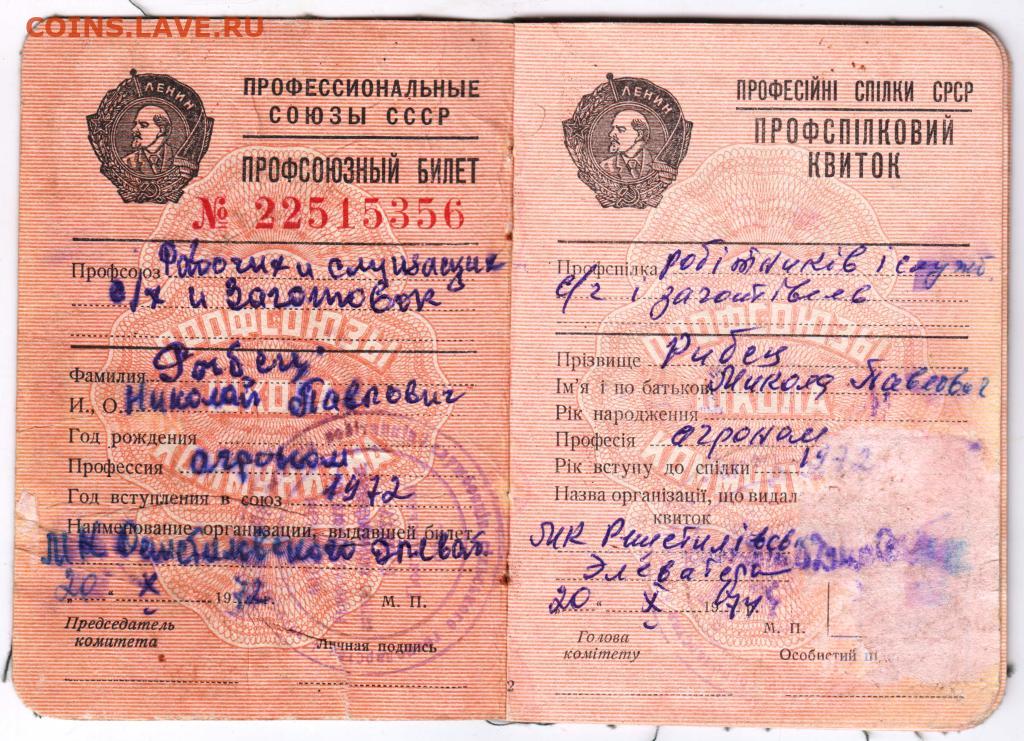 COINS.LAVE.RU
ЛЕНИН
ПРОФЕССИОНАЛЬНЫЕ
СОЮЗЫ СССР
ПРОФСОЮЗНЫЙ БИЛЕТ
№ 22515356
Профсоюз Рабочих и служащих
с/х и Заготовок
ПРОФСОЮЗЫ
ШКОЛА
КОММУНИЗМА
Фамилия Рыбец
И., О. Николай Павлович
Год рождения
Профессия агроном
Год вступления в союз 1972
Наименование организации, выдавшей билет
МК
20 " X 1972
М. П.
Председатель
комитета
Личная подпись
ЛЕНИН
ПРОФЕСІЙНІ СПІЛКИ СРСР
ПРОФСПІЛКОВИЙ
КВИТОК
Профспілка робітників і служб
с/г і заготівель
ПРОФСОЮЗЫ
ШКОЛА
Прізвище Рибец
Ім'я і по батькові Микола Павлович
Рік народження
Професія агроном
Рік вступу до спілки 1972
Назва організації, що видала
квиток
МК
Элеватера
20 " X 197
М. П.
Голова
комітету
Особистий
2